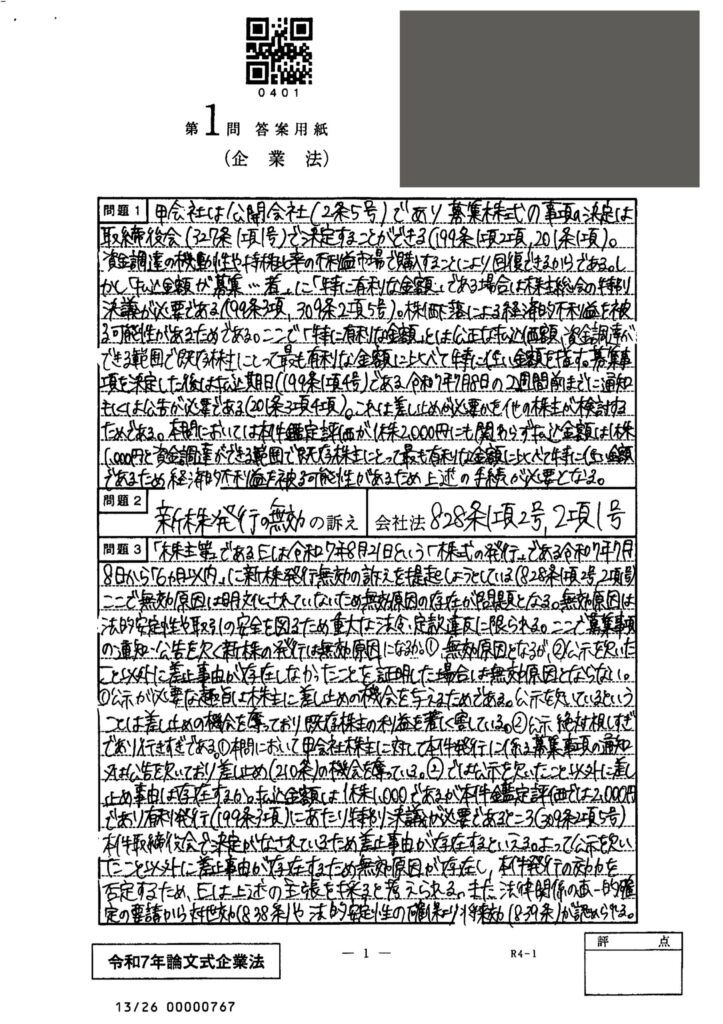 0401
第1問 答案用紙
(企業法)
問題1 甲会社は公開会社(2条5号)であり募集株式の事項の決定は
取締役会(327条1項1号)で決定することができる(199条1項2項,201条1項)。
資金調達の機動性や持株比率の不利益市場で購入することにより回復できるからである。し
かし「払込金額が募集…者」に「特に有利な金額」である場合は株主総会の特別
決議が必要である(199条3項,309条2項5号)。株価下落による経済的不利益を被
る可能性があるためである。ここで「特に有利な金額」とは公正な払込価額,資金調達が
できる範囲で既存株主にとって最も有利な金額に比べて特に低い金額を指す。募集事
項を決定した後は払込期日(199条1項4号)である令和7年7月8日の2週間前までに通知
もしくは公告が必要である(201条3項4項)。これは差し止めが必要かを他の株主が検討する
ためである。本問においては本件鑑定評価が1株2,000円にも関わらず払込金額は1株
1,000円と資金調達ができる範囲で既存株主にとって最も有利な金額に比べて特に低い金額
であるため経済的不利益を被る可能性があるため上述の手続が必要となる。
問題2 新株発行の無効の訴え 会社法828条1項2号,2項1号
問題3 「株主等」であるEは令和7年8月21日という「株式の発行」である令和7年7月
8日から「6ヵ月以内」に新株発行無効の訴えを提起しようとしている(828条1項2号,2項1号)
ここで無効原因は明文化されていないため無効原因の存在が問題となる。無効原因は
法的安定性や取引の安全を図るため重大な法令・定款違反に限られる。ここで募集事項
の通知・公告を欠く新株の発行は無効原因になるか。① 無効原因となるが ②公示を欠いた
こと以外に差止事由が存在しなかったことを証明した場合は無効原因とならない。
①公示が必要な趣旨は株主に差し止めの機会を与えるためである。公示を欠いているという
ことは差し止めの機会を奪っており既存株主の利益を著しく害している。②公示 絶対視しすぎ
であり行きすぎである。①本問において甲会社株主に対して本件発行に係る募集事項の通知
又は公告を欠いており差し止め(210条)の機会を奪っている。②では公示を欠いたこと以外に差し
止め事由は存在するか。払込金額は1株1,000であるが本件鑑定評価では2,000円
であり有利発行(199条3項)にあたり特別決議が必要であるところ(309条2項5号)
本件取締役会で決定がなされているため差止事由が存在するといえる。よって公示を欠い
たこと以外に差止事由が存在するため無効原因が存在し,本件発行の効力を
否定するため,Eは上述の主張を採ると考えられる。また,法律関係の画一的確
定の要請から対世効(838条)や法的安定性の確保より将来効(839条)が認められる。
— 1 —
R4-1
評点
令和7年論文式企業法
13/26 00000767